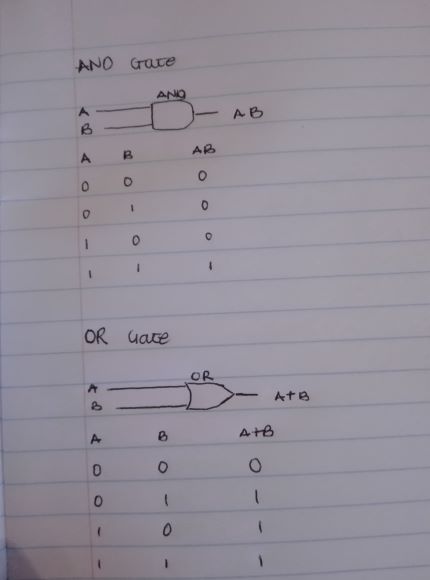 AND Gate
AND
A
AB
B
A B AB
0 0 0
0 1 0
1 0 0
1 1 1
OR Gate
OR
A
A+B
B
A B A+B
0 0 0
0 1 1
1 0 1
1 1 1